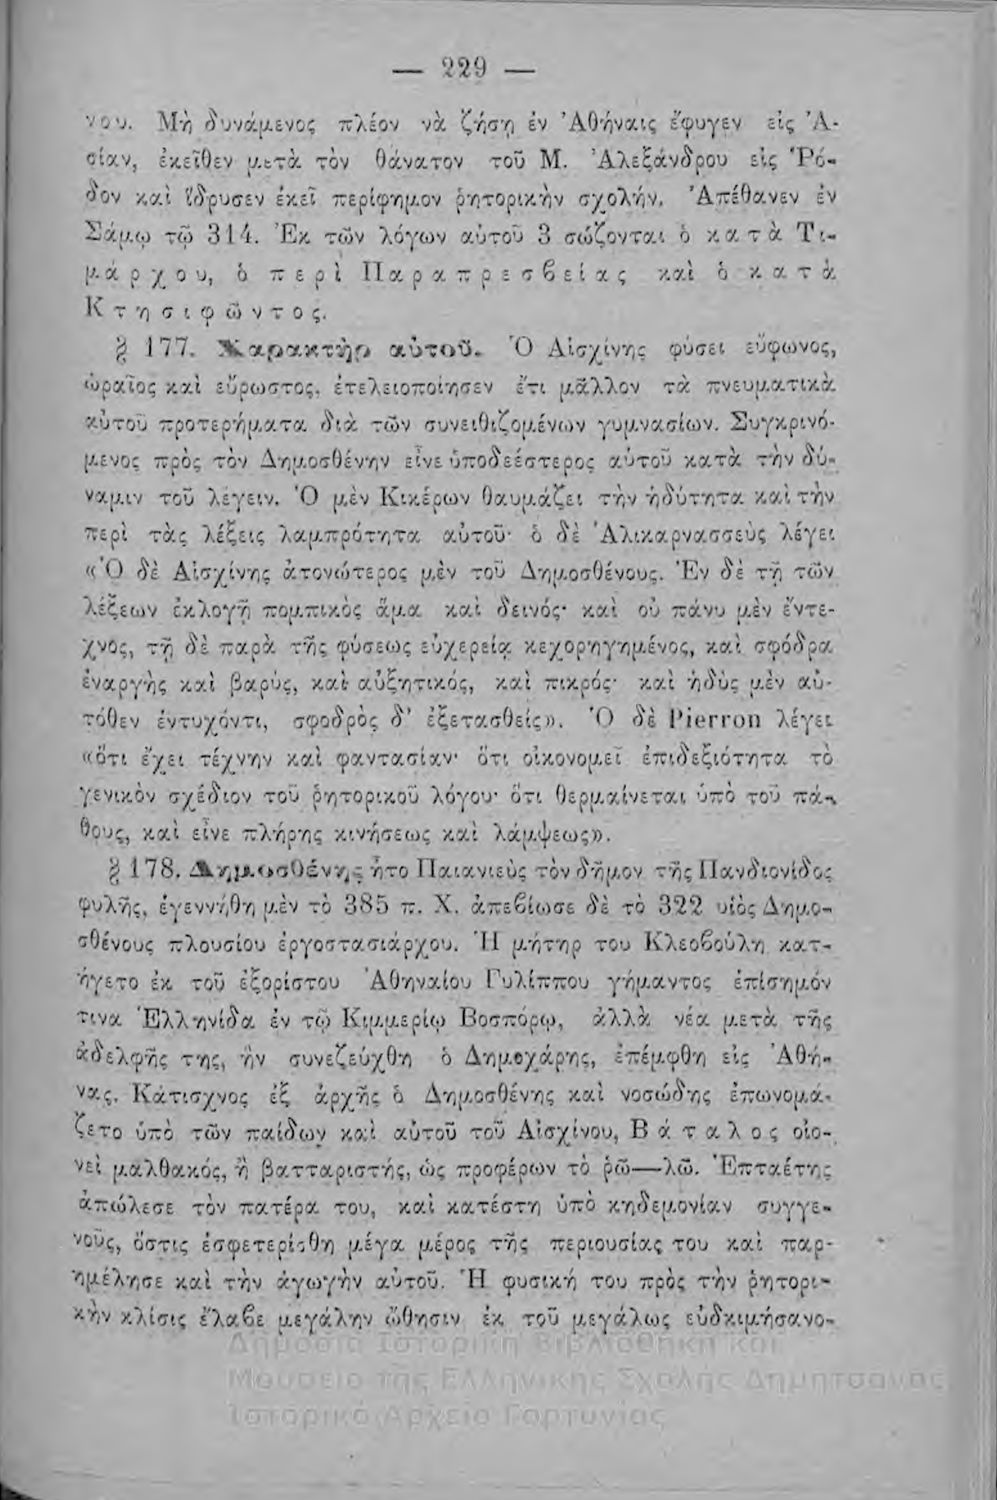 — 229 —
νου. Μὴ δυνάμενος πλέον νὰ ζήσῃ ἐν Ἀθήναις ἔφυγεν εἰς Ἀ-
σίαν, ἐκεῖθεν μετὰ τὸν θάνατον τοῦ Μ. Ἀλεξάνδρου εἰς Ῥό-
δον καὶ ἵδρυσεν ἐκεῖ περίφημον ῥητορικὴν σχολήν. Ἀπέθανεν ἐν
Σάμῳ τῷ 314. Ἐκ τῶν λόγων αὐτοῦ 3 σώζονται ὁ κατὰ Τι-
μάρχου, ὁ περὶ Παραπρεσβείας καὶ ὁ κατὰ
Κτησιφῶντος.
§ 177. Χαρακτὴρ αὐτοῦ. Ὁ Αἰσχίνης φύσει εὔφωνος,
ὡραῖος καὶ εὔρωστος, ἐτελειοποίησεν ἔτι μᾶλλον τὰ πνευματικὰ
αὐτοῦ προτερήματα διὰ τῶν συνειθιζομένων γυμνασίων. Συγκρινό-
μενος πρὸς τὸν Δημοσθένην εἶνε ὑποδεέστερος αὐτοῦ κατὰ τὴν δύ-
ναμιν τοῦ λέγειν. Ὁ μὲν Κικέρων θαυμάζει τὴν ἡδύτητα καὶ τὴν
περὶ τὰς λέξεις λαμπρότητα αὐτοῦ· ὁ δὲ Ἀλικαρνασσεὺς λέγει
«Ὁ δὲ Αἰσχίνης ἀτονώτερος μὲν τοῦ Δημοσθένους. Ἐν δὲ τῇ τῶν
λέξεων ἐκλογῇ πομπικὸς ἅμα καὶ δεινός· καὶ οὐ πάνυ μὲν ἔντε-
χνος, τῇ δὲ παρὰ τῆς φύσεως εὐχερείᾳ κεχορηγημένος, καὶ σφόδρα
ἐναργὴς καὶ βαρύς, καὶ αὐξητικός, καὶ πικρός· καὶ ἡδὺς μὲν αὐ-
τόθεν ἐντυχόντι, σφοδρὸς δ' ἐξετασθείς». Ὁ δὲ Pierron λέγει
«ὅτι ἔχει τέχνην καὶ φαντασίαν· ὅτι οἰκονομεῖ ἐπιδεξιότητα τὸ
γενικὸν σχέδιον τοῦ ῥητορικοῦ λόγου· ὅτι θερμαίνεται ὑπὸ τοῦ πά-
θους, καὶ εἶνε πλήρης κινήσεως καὶ λάμψεως».
§ 178. Δημοσθένης ἦτο Παιανιεὺς τὸν δῆμον τῆς Πανδιονίδος
φυλῆς, ἐγεννήθη μὲν τὸ 385 π. Χ. ἀπεβίωσε δὲ τὸ 322 υἱὸς Δημο-
σθένους πλουσίου ἐργοστασιάρχου. Ἡ μήτηρ του Κλεοβούλη κατ-
ήγετο ἐκ τοῦ ἐξορίστου Ἀθηναίου Γυλίππου γήμαντος ἐπίσημόν
τινα Ἑλληνίδα ἐν τῷ Κιμμερίῳ Βοσπόρῳ, ἀλλὰ νέα μετὰ τῆς
ἀδελφῆς της, ἣν συνεζεύχθη ὁ Δημοχάρης, ἐπέμφθη εἰς Ἀθή-
νας. Κάτισχνος ἐξ ἀρχῆς ὁ Δημοσθένης καὶ νοσώδης ἐπωνομά-
ζετο ὑπὸ τῶν παίδων καὶ αὐτοῦ τοῦ Αἰσχίνου, Βάταλος οἱο-
νεὶ μαλθακός, ἢ βατταριστής, ὡς προφέρων τὸ ῥῶ—λῶ. Ἑπταέτης
ἀπώλεσε τὸν πατέρα του, καὶ κατέστη ὑπὸ κηδεμονίαν συγγε-
νοῦς, ὅστις ἐσφετερίσθη μέγα μέρος τῆς περιουσίας του καὶ παρ-
ημέλησε καὶ τὴν ἀγωγὴν αὐτοῦ. Ἡ φυσική του πρὸς τὴν ῥητορι-
κὴν κλίσις ἔλαβε μεγάλην ὤθησιν ἐκ τοῦ μεγάλως εὐδκιμήσανο-
Δημόσια Ιστορική Βιβλιοθήκη και
Μουσείο της Ελληνικής Σχολής Δημητσάνας
Ιστορικό Αρχείο Γορτυνίας